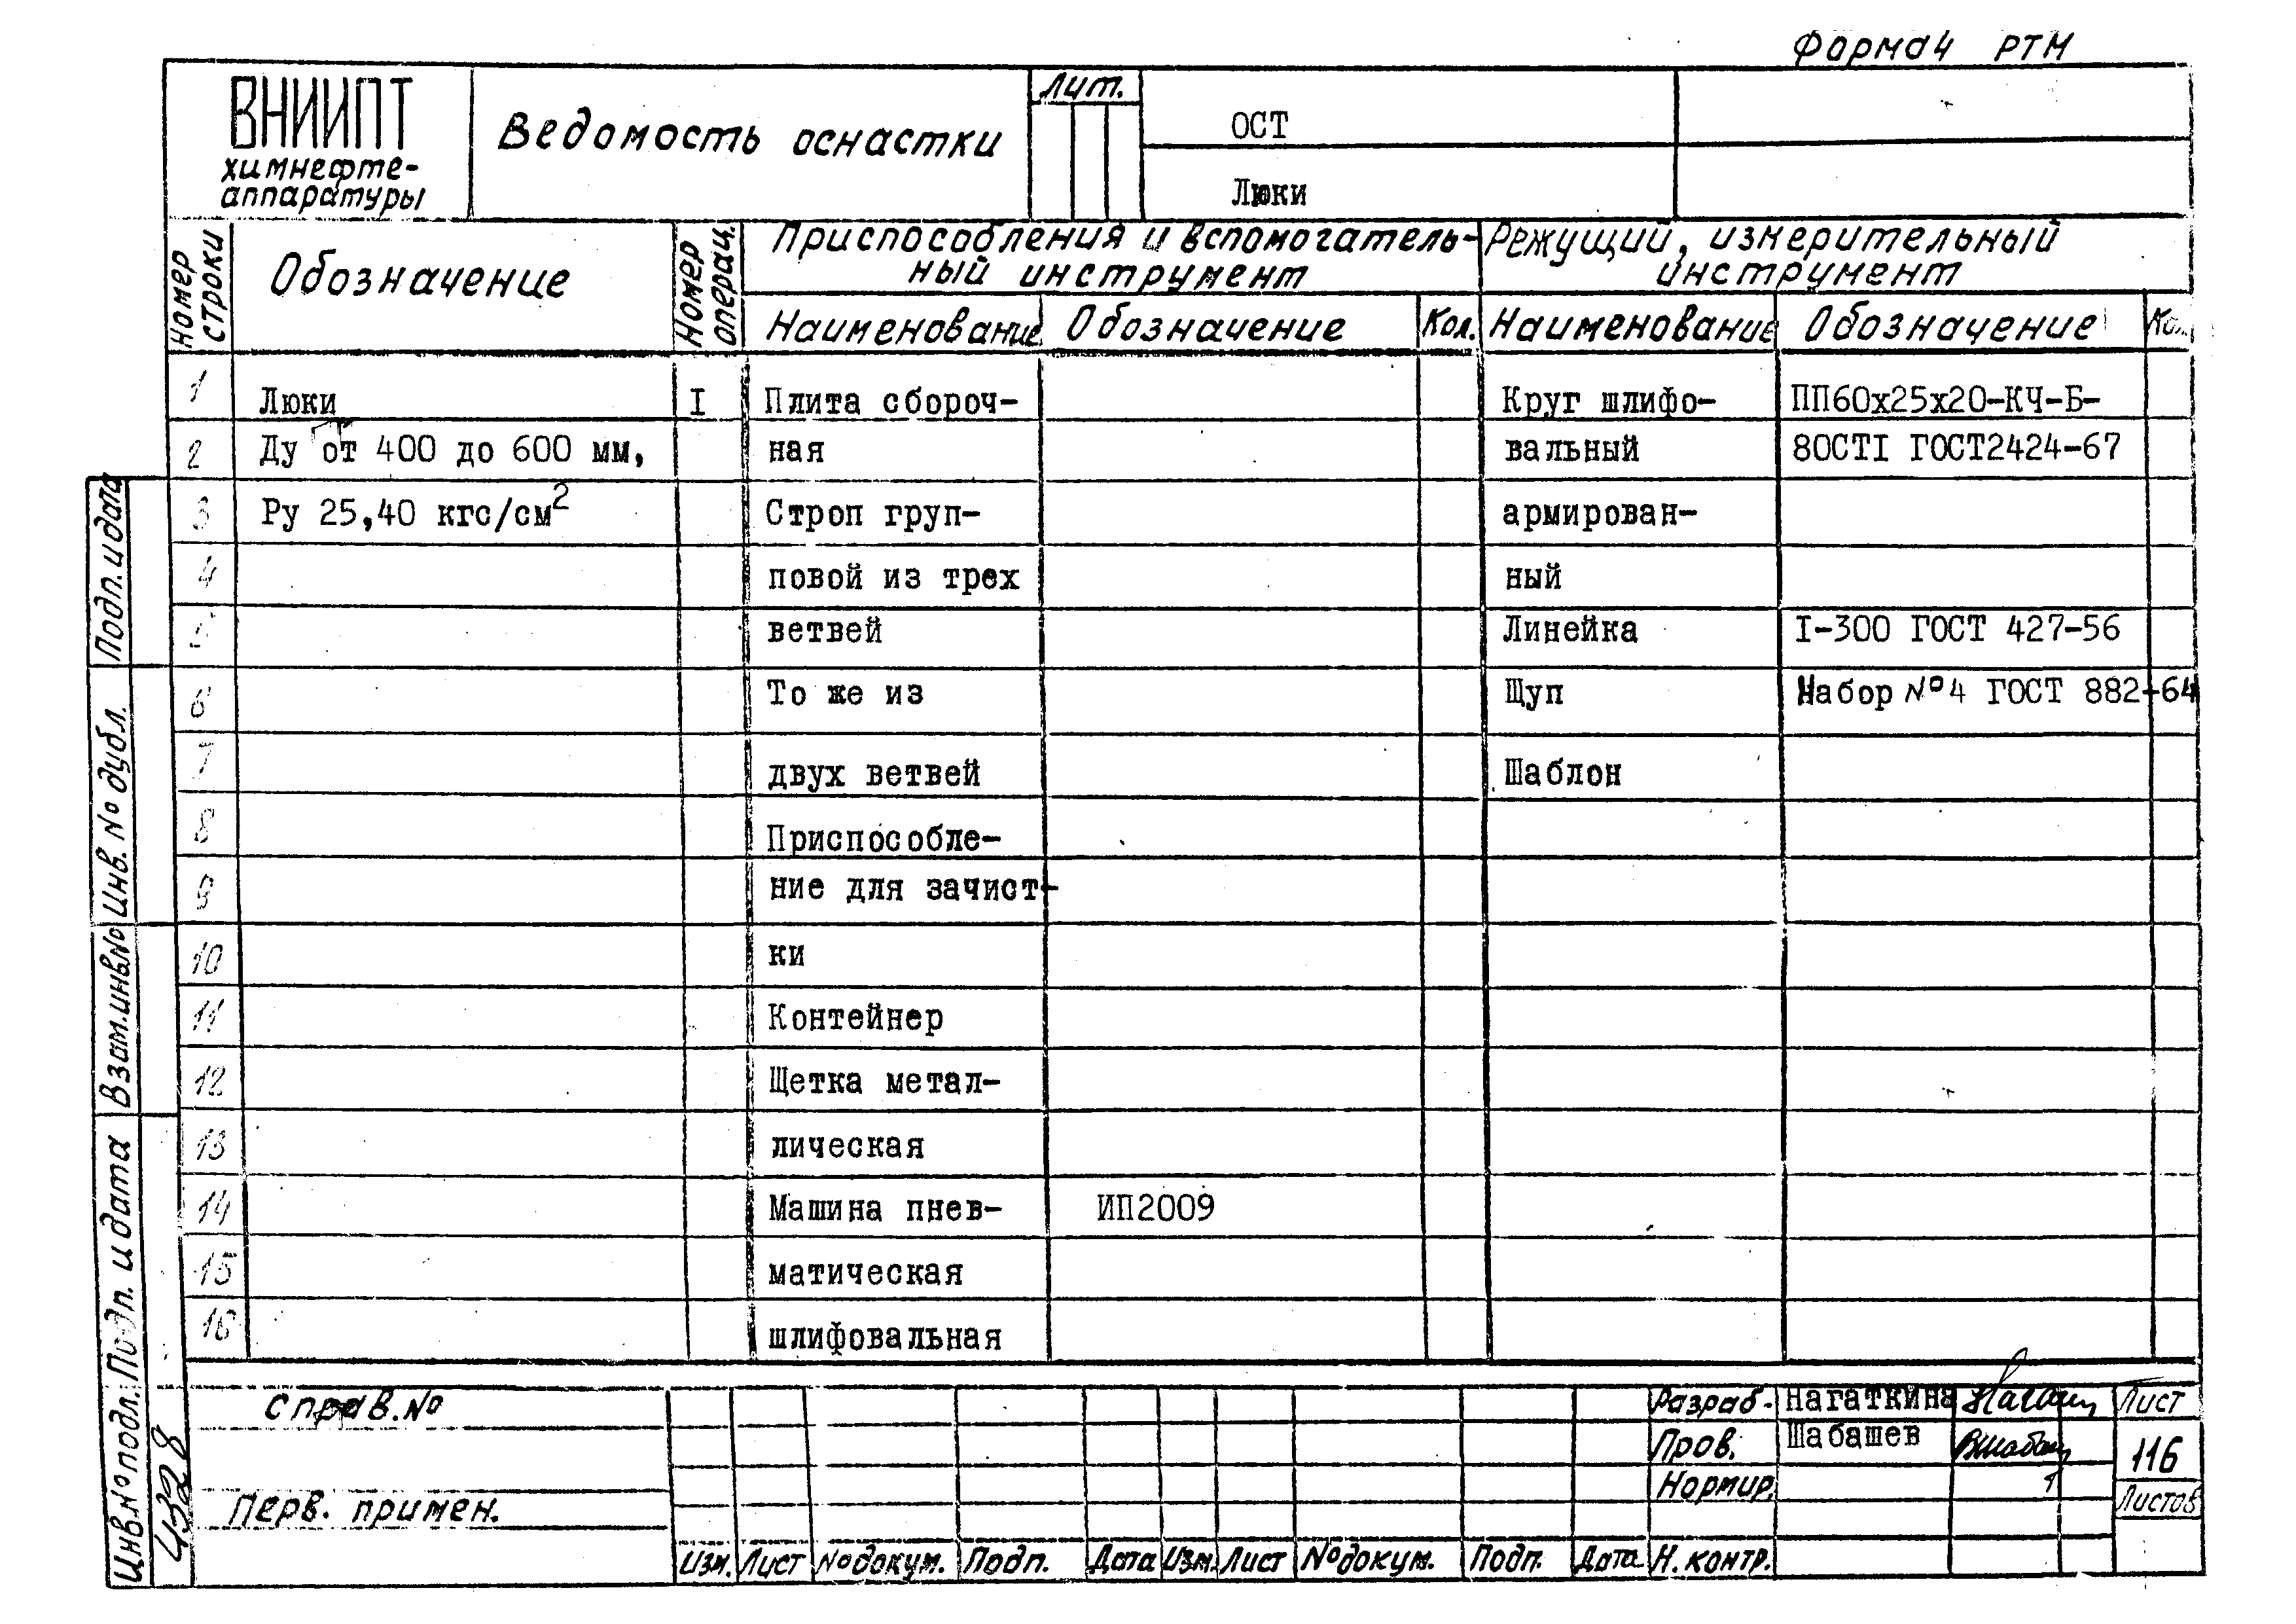 Форма4 РТМ
ВНИИПТ
химнефте-
аппаратуры
Ведомость оснастки
Лит.
ОСТ
Люки
Номер строки
Обозначение
Номер операц.
Приспособления и вспомогатель-
ный инструмент
Режущий, измерительный
инструмент
Наименование Обозначение Кол. Наименование Обозначение Кол.
1 Люки I Плита сбороч- Круг шлифо- ПП60х25х20-КЧ-Б-
2 Ду от 400 до 600 мм, ная вальный 80СТI ГОСТ2424-67
3 Ру 25,40 кгс/см2 Строп груп- армирован-
4 повой из трех ный
5 ветвей Линейка I-300 ГОСТ 427-56
6 То же из Щуп Набор №4 ГОСТ 882-64
7 двух ветвей Шаблон
8 Приспособле-
9 ние для зачист-
10 ки
11 Контейнер
12 Щетка метал-
13 лическая
14 Машина пнев- ИП2009
15 матическая
16 шлифовальная
Подп. и дата
Инв. № дубл.
Взам.инв№
Подп. и дата
Инв.№ подл.
4328
Справ.№
Перв. примен.
Разраб. Нагаткина Лист
Пров. Шабашев 116
Нормир. Листов
Изм. Лист № докум. Подп. Дата Изм. Лист № докум. Подп. Дата Н. контр.